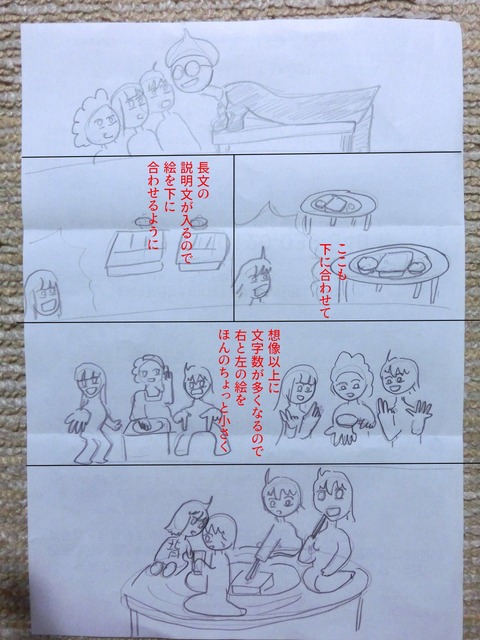 長文の
説明文が入るので
絵を下に
合わせるように
ここも
下に合わせて
想像以上に
文字数が多くなるので
右と左の絵を
ほんのちょっと小さく